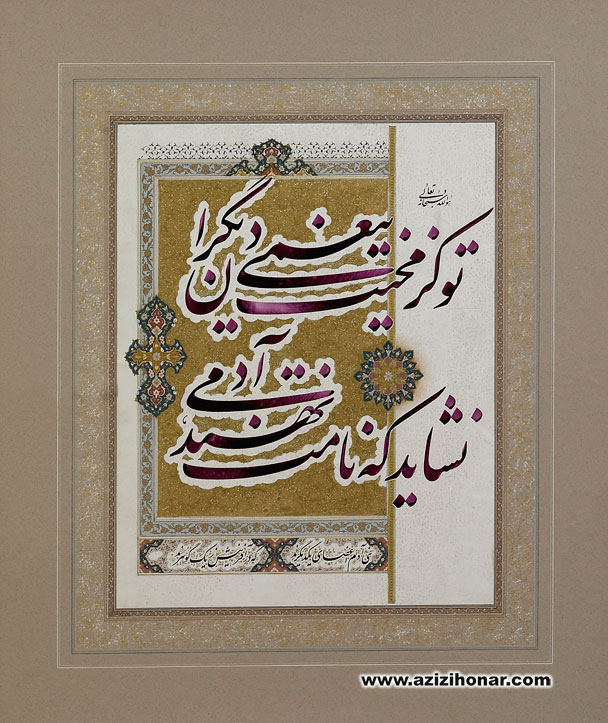 هو الله سبحانه و تعالی
تو کز محنت دیگران بیغمی
نشاید که نامت نهند آدمی
بنی آدم اعضای یکدیگرند که در آفرینش ز یک گوهرند
www.azizihonar.com